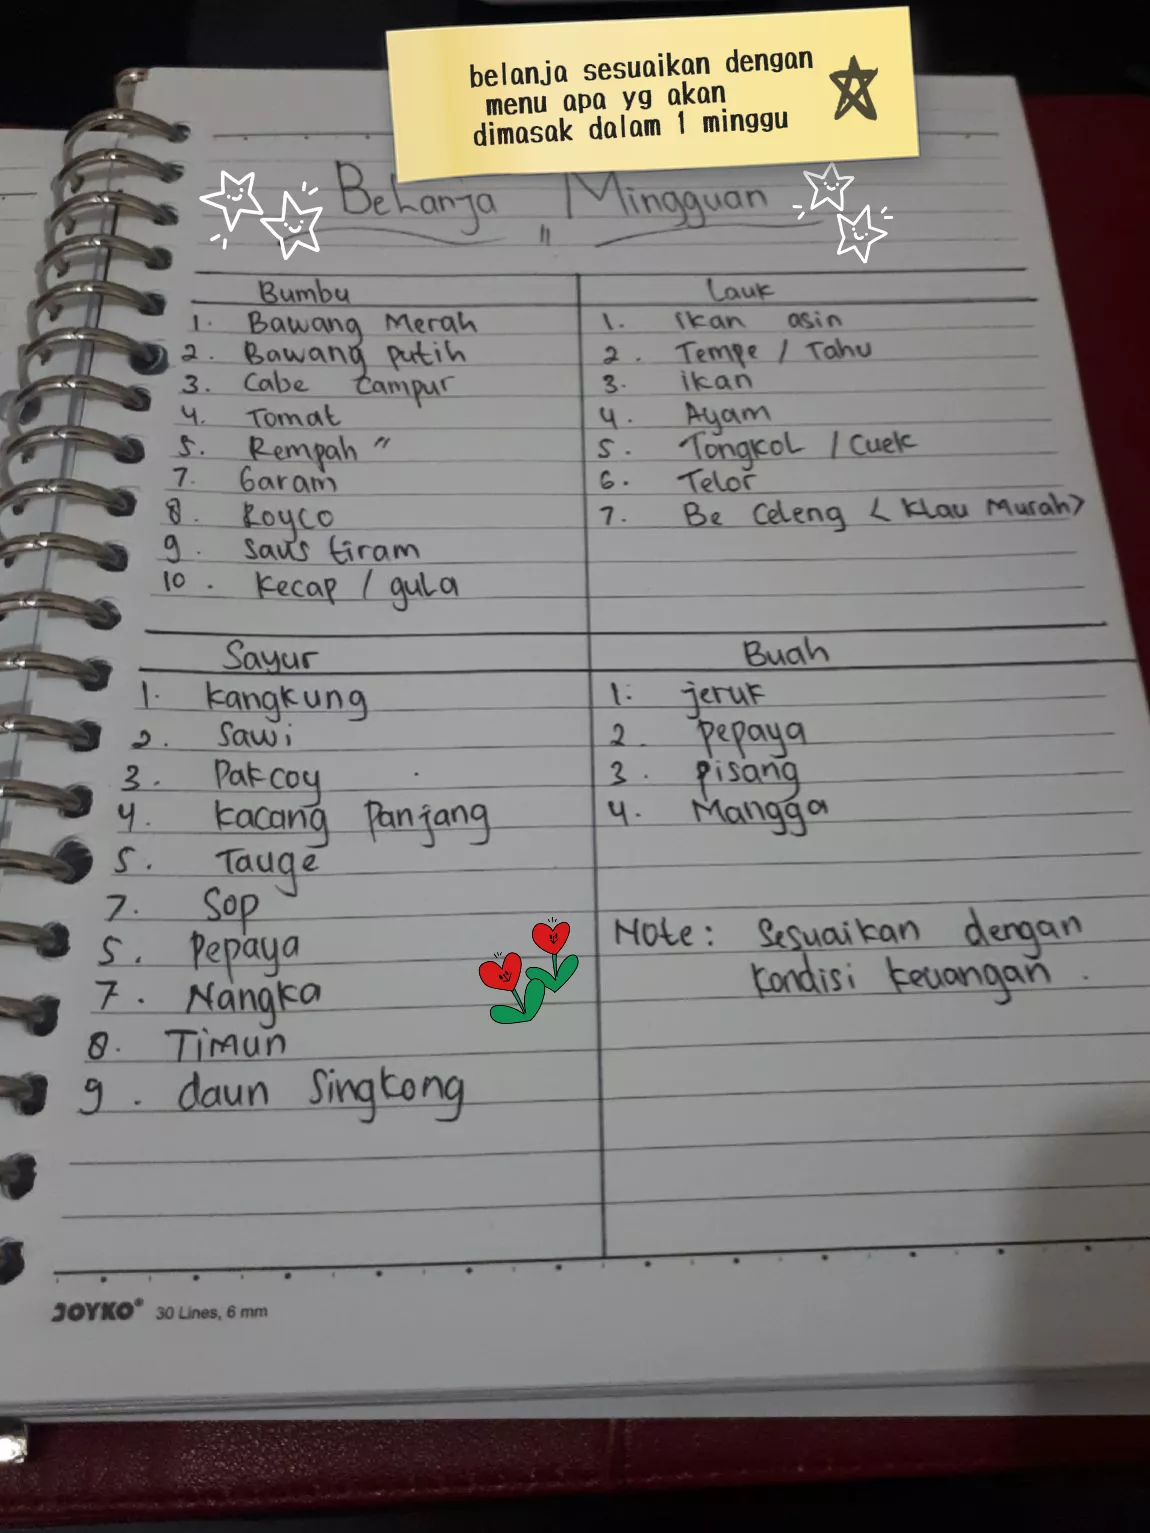 belanja sesuaikan dengan
menu apa yg akan
dimasak dalam 1 minggu
Belanja Mingguan
"
Bumbu
1. Bawang Merah
2. Bawang putih
3. Cabe Campur
4. Tomat
5. Rempah "
7. Garam
8. Royco
9. Saus tiram
10. Kecap / gula
Lauk
1. ikan asin
2. Tempe / Tahu
3. ikan
4. Ayam
5. Tongkol / Cuek
6. Telor
7. Be Celeng < Klau Murah>
Sayur
1. Kangkung
2. Sawi
3. Pakcoy
4. Kacang Panjang
5. Tauge
7. Sop
5. Pepaya
7. Nangka
8. Timun
9. daun Singkong
Buah
1. jeruk
2. Pepaya
3. Pisang
4. Mangga
Note: Sesuaikan dengan
kondisi keuangan.
JOYKO® 30 Lines, 6 mm